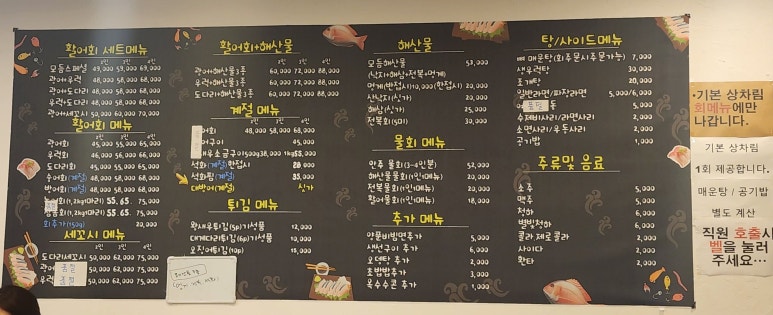 활어회 세트메뉴
2인 3인 4인
모듬스페셜 49,000 59,000 69,000
광어+우럭 48,000 58,000 68,000
광어+도다리 48,000 58,000 68,000
우럭+도다리 48,000 58,000 68,000
광어+세꼬시 50,000 60,000 70,000
활어회 메뉴
2인 3인 4인
광어회 45,000 55,000 65,000
우럭회 46,000 56,000 66,000
도다리회 45,000 55,000 65,000
숭어회(계절) 48,000 58,000 68,000
방어회(계절) 48,000 58,000 68,000
회(1,2kg1마리) 55. 65. 75,000
회(1,2kg1마리) 55. 65. 75,000
회추가(150g) 20,000
세꼬시 메뉴
2인 3인 4인
도다리세꼬시 50,000 62,000 75,000
광어 품절 50,000 62,000 75,000
우럭 품절 50,000 62,000 75,000
활어회+해산물
2인 3인 4인
광어+해산물3종 60,000 72,000 88,000
우럭+해산물3종 60,000 72,000 88,000
도다리+해산물3종 60,000 72,000 88,000
계절 메뉴
어회 48,000 58,000 68,000
어구이 45,000
새우소금구이500g38,000 1kg55,000
석화(계절)한접시
석화찜(계절) 35,000
대방어(계절) 싱가
튀김 메뉴
왕새우튀김(5p)기성품 12,000
대게다리튀김(6p)기성품 10,000
오징어튀김(10p) 15,000
해산물
모듬해산물 53,000
(낙지+해삼+전복+멍게)
멍게(반접시)10,000(한접시) 20,000
산낙지(싱가) 20,000
해삼(싱가) 25,000
전복회(5미) 30,000
물회 메뉴
만주 물회(3~4인분) 52,000
해산물물회(1인1메뉴) 18,000
전복물회(1인1메뉴) 20,000
활어물회(1인1메뉴) 18,000
추가 메뉴
양푼비빔면추가 5,000
생선구이 추가 5,000
오뎅탕 추가 5,000
초밥밥추가 3,000
옥수수콘 추가 1,000
탕/사이드메뉴
뼈 매운탕(회주문시주문가능) 7,000
생우럭탕 30,000
조개탕 20,000
일반라면/짜장라면 5,000/6,000
품절 동 5,000
수제비사리/라면사리 2,000
소면사리/우동사리 2,000
공기밥 1,000
주류및 음료
소주 5,000
맥주 5,000
청하 6,000
별빛청하 6,000
콜라 제로콜라 2,000
사이다 2,000
환타 2,000
*기본 상차림
회메뉴에만
나갑니다.
기본 상차림
1회 제공합니다.
매운탕 / 공기밥
별도 계산
직원 호출시
벨을 눌러
주세요…